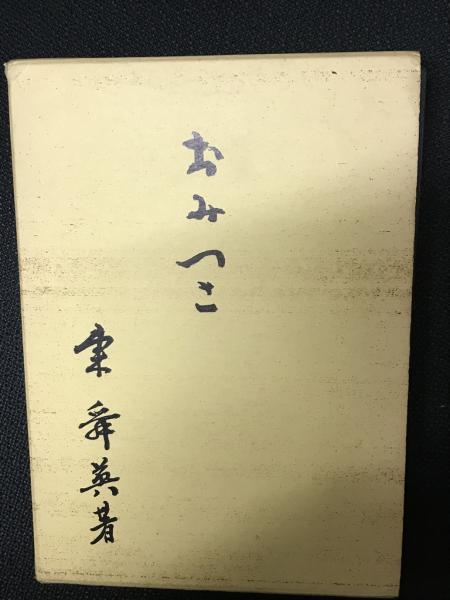 おみつさ
東舜英著